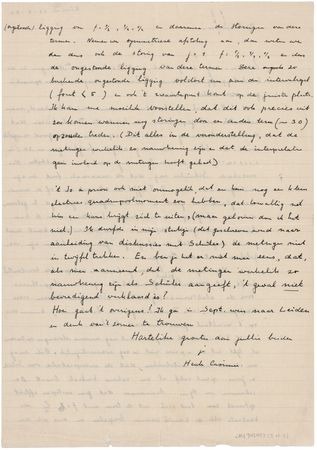 (ongestoorde) ligging van f. ½, ¼, ⁰/₄ en daarmee de storingen van deze
termen. Nemen we symmetrische afstoting aan, dan weten we
dan dus ook de storing van en dus
de ongestoorde ligging van deze termen. Deze
ongestoorde ligging voldoet nu aan de intervalregel
(fout ) en ook 't zwaartepunt komt op de juiste plaats.
Ik kan me moeilijk voorstellen, dat dit ook precies uit
zou komen wanneer nog storingen door een andere term (in 30)
optraden. (Dit alles in de veronderstelling, dat de
metingen werkelijk zo nauwkeurig zijn en dat de interpretatie
geen invloed op de metingen heeft gehad)
't Is a priori ook niet onmogelijk dat een kern nog een klein
electrisch quadrupolmoment zou hebben, dat toevallig
in en kans krijgt zich te uiten, (maar geloven doe ik het
niet.) Ik durfde in mijn stukje (dat geschreven werd naar
aanleiding van discussies met Schüler) de metingen niet
in twijfel trekken. En ben je het er niet mee eens, dat,
als men aanneemt, dat de metingen werkelijk zo
nauwkeurig zijn als Schüler aangeeft, 't geval niet
bevredigend verklaard is?
Hoe gaat 't overigens? Ik ga in Sept. weer naar Leiden
en denk van 't zomer te trouwen
Hartelijke groeten aan jullie beiden
Henk Casimir.